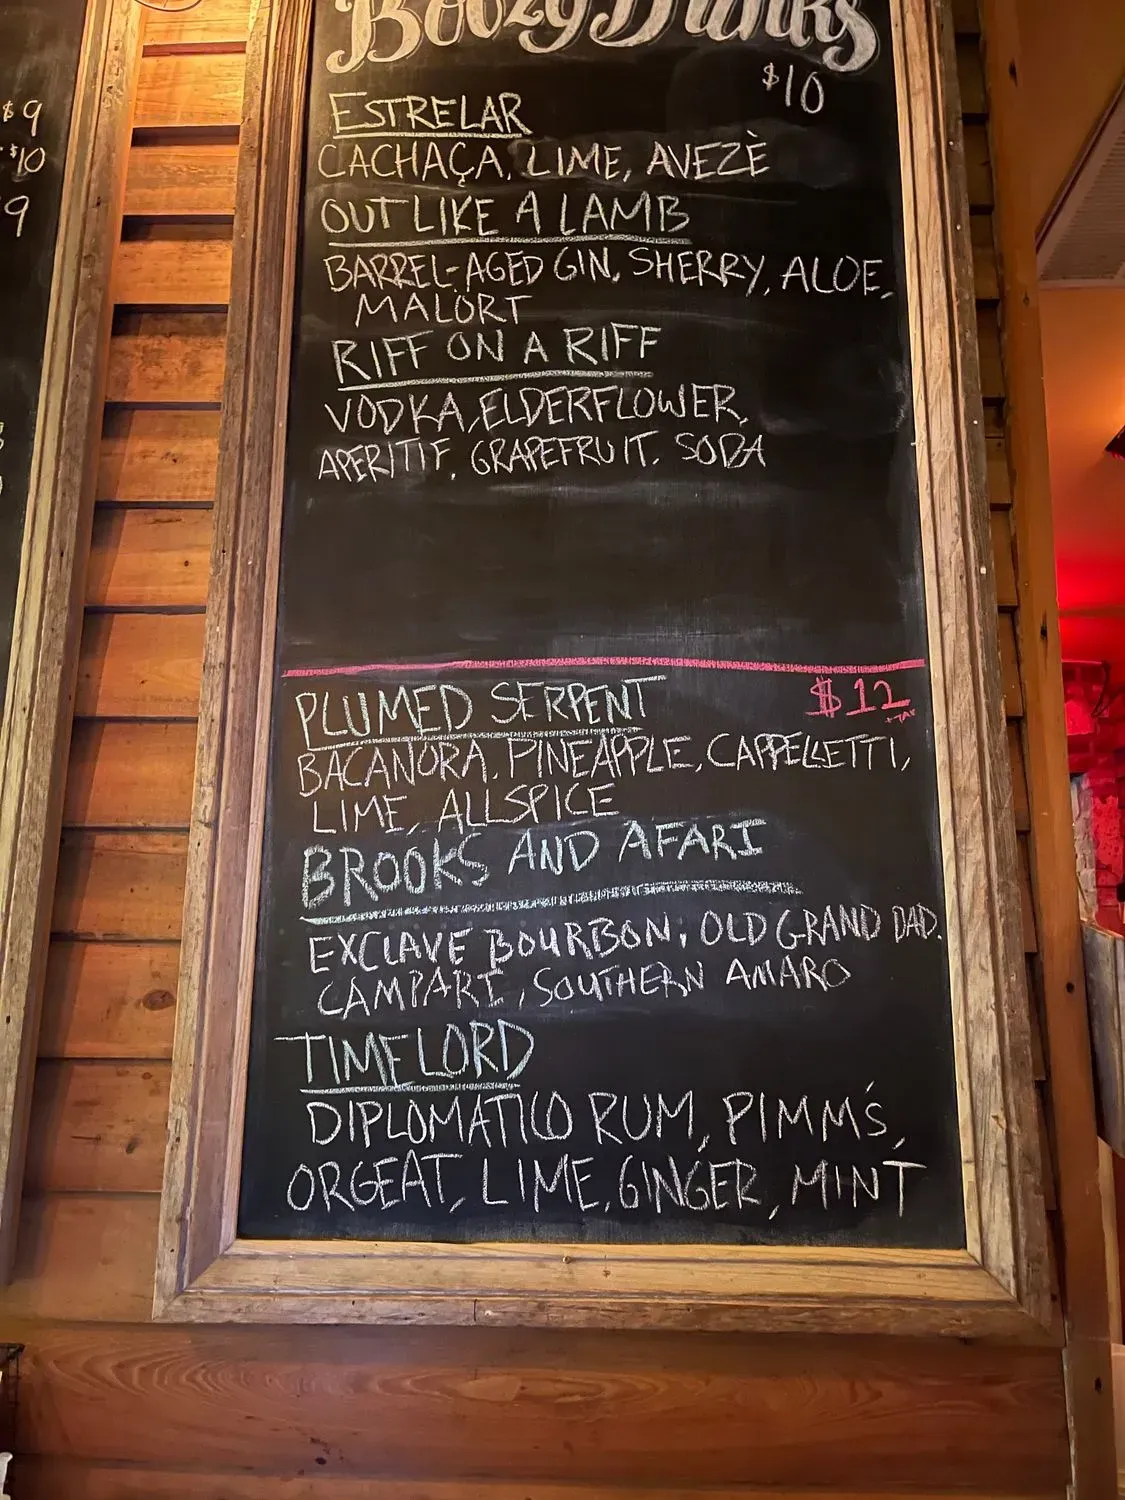 Boozy Drinks
$10
$9
$10
9
ESTRELAR
CACHAÇA, LIME, AVEZÈ
OUT LIKE A LAMB
BARREL-AGED GIN, SHERRY, ALOE,
MALÖRT
RIFF ON A RIFF
VODKA, ELDERFLOWER,
APERITIF, GRAPEFRUIT, SODA
PLUMED SERPENT $12
+TAX
BACANORA, PINEAPPLE, CAPPELLETTI,
LIME, ALLSPICE
BROOKS AND AFARI
EXCLAVE BOURBON, OLD GRAND DAD.
CAMPARI, SOUTHERN AMARO
TIMELORD
DIPLOMATICO RUM, PIMM'S,
ORGEAT, LIME, GINGER, MINT